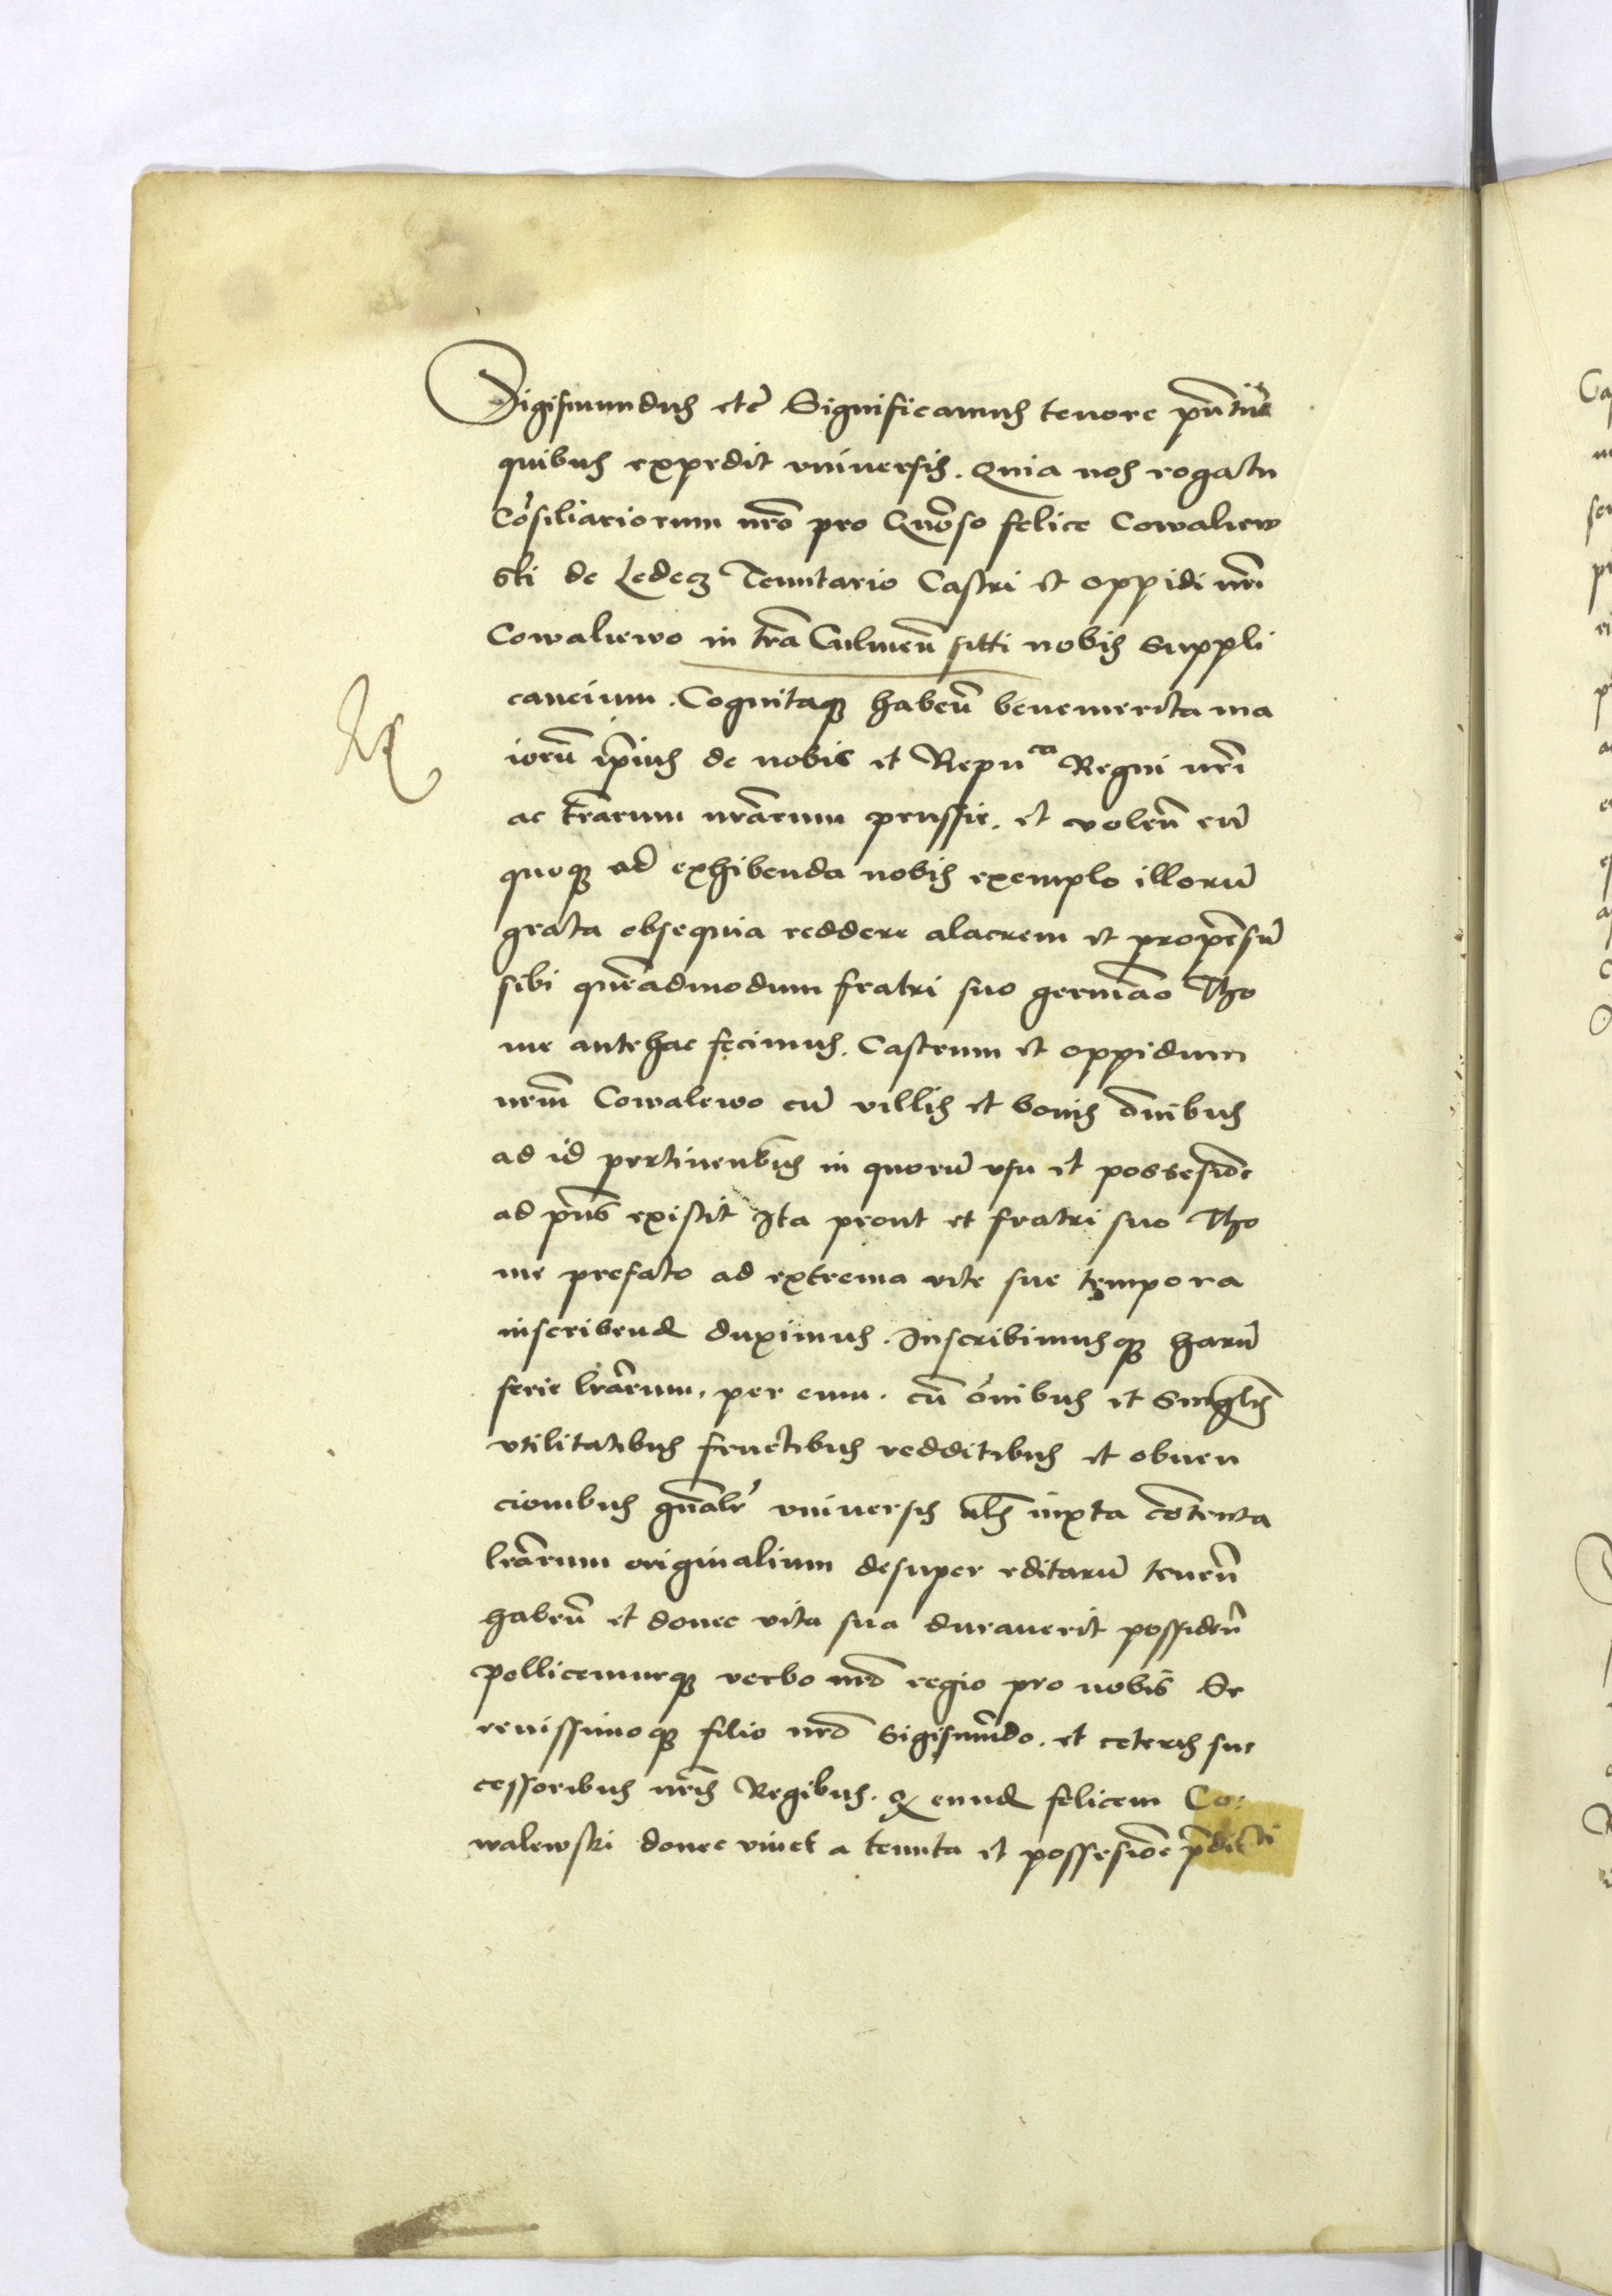 Sigismundus etc̃ Significamus tenore p̃ntiũ
quibus expedit vniuersis. Quia nos rogatu
Cõsiliariorum nr̃o pro Gñoso felice Cowalew
ski de Ledecz Tenutario Castri et oppidi nr̃i
Cowalewo in tr̃a Culmeñ sitti nobis suppli
cancium. Cognitaqꝫ habeñ benemerita ma
iorũ ip̃ius de nobis et Repuca Regni nr̃i
ac tr̃arum nr̃arum prussie. et voleñ eũ
quoqꝫ ad exhibenda nobis exemplo illorũ
grata obsequia reddere alacrem et propẽsũ
sibi quẽadmodum fratri suo germão Tho
me antehac fecimus. Castrum et oppidum
nr̃m Cowalewo cũ villis et bonis om̃ibus
ad id pertinentib̃us in quorũ vsu et possesiõe
ad p̃ns existit Ita prout et fratri suo Tho
me prefato ad extrema vite sue tempora
inscribend duximus. Inscribimusqꝫ harũ
serie lr̃arum. per eum. cũ om̃ibus et singlis̃
vtilitatibus fructibus redditibus et obuen
cionibus gñalr̃ vniuersis als̃ iuxta cõtenta
lr̃arum originalium desuper editarũ teneñ
habeñ et donec vita sua durauerit possideñ
Pollicemurqꝫ verbo nr̃o regio pro nobis Se
renissimoqꝫ filio nr̃o Sigismũdo. et ceteris suc
cessoribus nr̃is Regibus. qꝫ eund felicem Co:
walewski donec viuet a tenuta et possesiõe p̃dicti